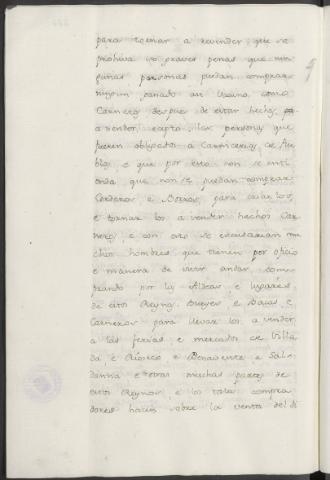 para tornar a revender, que se
prohiva so graves penas que nin
gunas personas puedan comprar
ningun ganado en Verano, como
Carneros despues de estar hechos, pa
a vender, eapto, los personas que
fueren obligados a Carnicerias de Pue
blos, e que por esto non se enti
enda que non se puedan comprar
Corderos e Borros, para criar los,
e tornar los a vender hechos Car
neros, e con esto se escusarian mu
chos hombres que tienen por oficio
e manera de vivir andar com
prando por las Aldeas e lugares
de estos Reynos, Bueyes e Bacas e
Carneros para llevar los a vender
a las ferias e mercados de Villa
da e Rioseco e Benavente e Sal
danna e otras muchas partes de
estos Reynos, e los tales compra
dores hacen sobre la venta del di